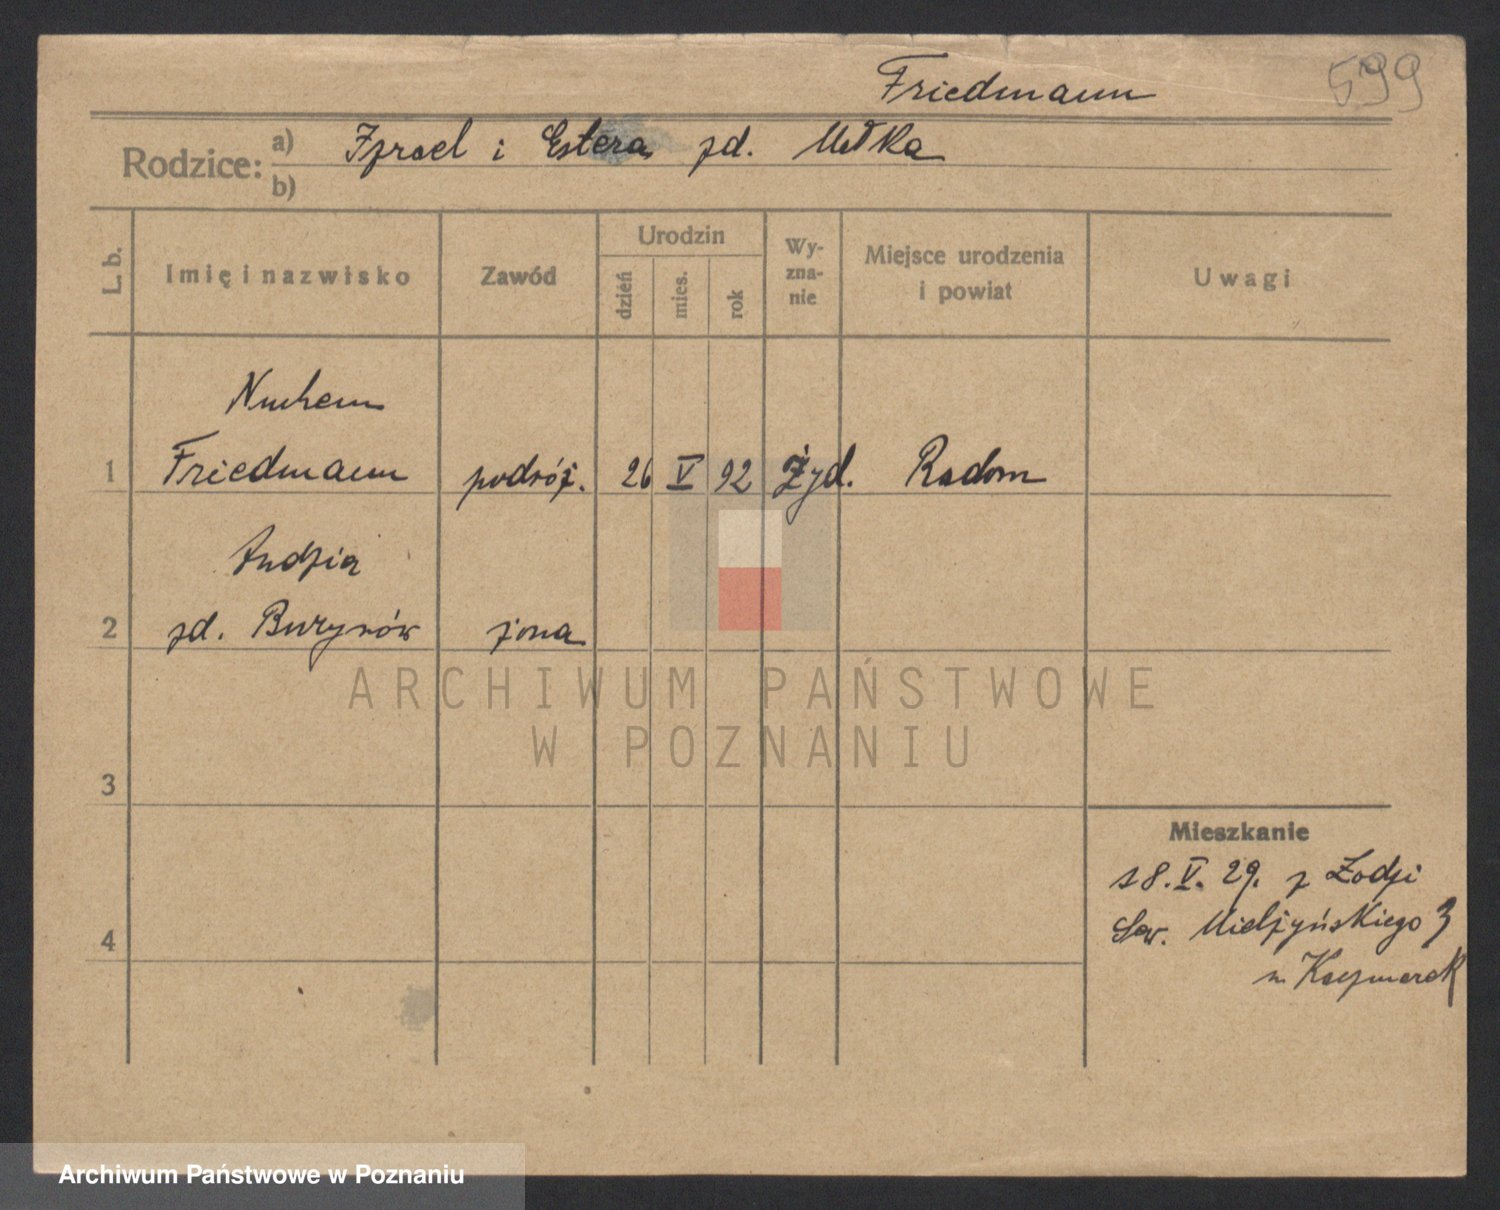 Friedmann 599
Rodzice: a) Izrael i Estera zd. Małka
b)
L. b. Imię i nazwisko Zawód Urodzin dzień mies. rok Wy-zna-nie Miejsce urodzenia i powiat Uwagi
Nuchem
1 Friedmann podróż. 26 V 92 Żyd. Radom
Andzia
2 zd. żona
3
4
Mieszkanie
18. V. 29. z Łodzi
Sew. Mielżyńskiego 3
m. Kaczmarek
ARCHIWUM PAŃSTWOWE
W POZNANIU
Archiwum Państwowe w Poznaniu